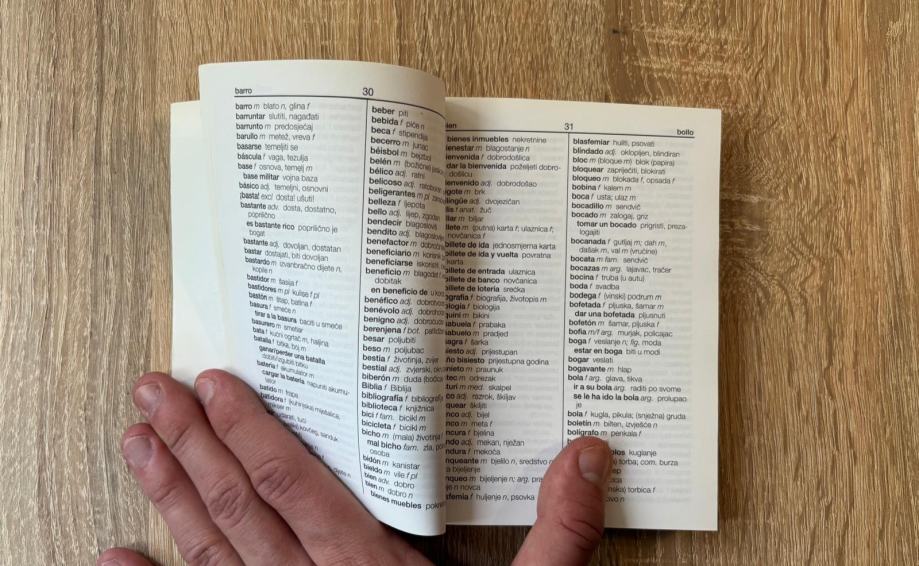 barro 30
barro m blato n, glina f
barruntar slutiti, nagađati
barrunto m predosjećaj
barullo m metež, vreva f
basarse temeljiti se
báscula f vaga, težulja
base f osnova, temelj m
base militar vojna baza
básico adj. temeljni, osnovni
¡basta! excl dosta! ušuti!
bastante adv. dosta, dostatno,
poprilično
es bastante rico poprilično je
bogat
bastante adj. dovoljan, dostatan
bastar dostajati, biti dovoljan
bastardo m izvanbračno dijete n,
kopile n
bastidor m šasija f
bastidores m pl kulise f pl
bastón m štap, batina f
basura f smeće n
tirar a la basura baciti u smeće
basurero m smetlar
bata f kućni ogrtač m, haljina
batalla f bitka, boj m
ganar/perder una batalla
dobiti/izgubiti bitku
batería f akumulator m
cargar la batería napuniti akumu-
lator
batido m frape
batidora f (kuhinjska) miješalica,
beber piti
bebida f piće n
beca f stipendija
becerro m junac
béisbol m bejzbol
belén m (božićne)
bélico adj. ratni
belicoso adj. ratoboran
beligerantes m pl
belleza f ljepota
bello adj. lijep, zgodan
bendecir blagoslovi
bendito adj. blagoslov
benefactor m dobročin
beneficiario m korisnik
beneficiarse iskoristi
beneficio m blagodat f
dobitak
en beneficio de u kor
benéfico adj. dobrotvo
benévolo adj. dobrohot
benigno adj. dobroćud
berenjena f bot. patlidž
besar poljubiti
beso m poljubac
bestia f životinja, zvijer
bestial adj. zvjerski, ok
biberón m duda (bočica
Biblia f Biblija
bibliografía f bibliografij
biblioteca f knjižnica
bici f fam. bicikl m
bicicleta f bicikl m
bicho m (mala) životinja
mal bicho fam. zla, po
osoba
bidón m kanistar
bieldo m vile f pl
bien adv. dobro
bien m dobro n
bienes muebles pokre
ien 31 bollo
bienes inmuebles nekretnine
enestar m blagostanje n
ienvenida f dobrodošlica
dar la bienvenida poželjeti dobro-
došlicu
envenido adj. dobrodošao
igote m brk
ilingüe adj. dvojezičan
ilis f anat. žuč
illar m biljar
illete m (putna) karta f; ulaznica f;
novčanica f
billete de ida jednosmjerna karta
billete de ida y vuelta povratna
karta
billete de entrada ulaznica
billete de banco novčanica
billete de lotería srećka
ografía f biografija, životopis m
ología f biologija
quini m bikini
abuela f prabaka
abuelo m pradjed
sagra f šarka
siesto adj. prijestupan
ño bisiesto prijestupna godina
nieto m praunuk
tec m odrezak
turí m med. skalpel
co adj. razrok, škiljav
quear škiljiti
nco adj. bijel
nco m meta f
ncura f bjelina
ndo adj. mekan, nježan
ndura f mekoća
nqueante m bjelilo n, sredstvo n
a bijeljenje
nqueo m bijeljenje n; arg. pra
e n novca
sfemia f huljenje n, psovka
blasfemar huliti, psovati
blindado adj. oklopljen, blindiran
bloc m (bloque m) blok (papira)
bloquear zapriječiti, blokirati
bloqueo m blokada f, opsada f
bobina f kalem m
boca f usta; ulaz m
bocadillo m sendvič
bocado m zalogaj, griz
tomar un bocado prigristi, preza-
logajiti
bocanada f gutljaj m; dah m,
dašak m, val m (vrućine)
bocata m fam. sendvič
bocazas m arg. lajavac, tračer
bocina f truba (u autu)
boda f svadba
bodega f (vinski) podrum m
bofetada f pljuska, šamar m
dar una bofetada pljusnuti
bofetón m šamar, pljuska f
bofia m/f arg. murjak, policajac
boga f veslanje n; fig. moda
estar en boga biti u modi
bogar veslati
bogavante m hlap
bola f arg. glava, tikva
ir a su bola arg. raditi po svome
se le ha ido la bola arg. prolupao
je
bola f kugla, pikula; (snježna) gruda
boletín m bilten, izvješće n
bolígrafo m penkala f
olos kuglanje
torba; com. burza
ep
ica
nska) torbica f